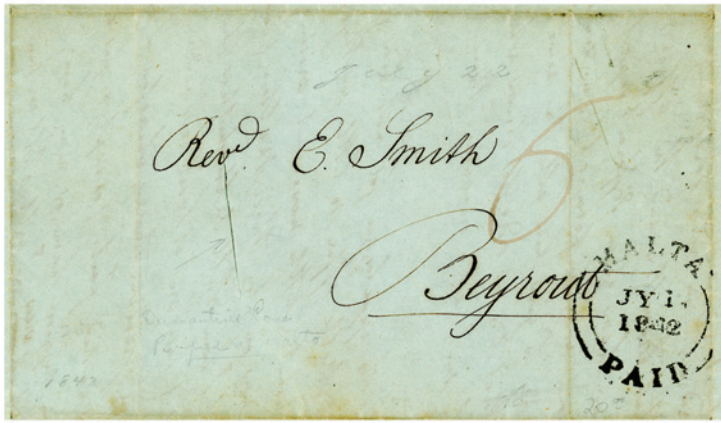 July 22
Revd. E. Smith
6
Beyrout
MALTA
JY 1
1842
PAID
1842